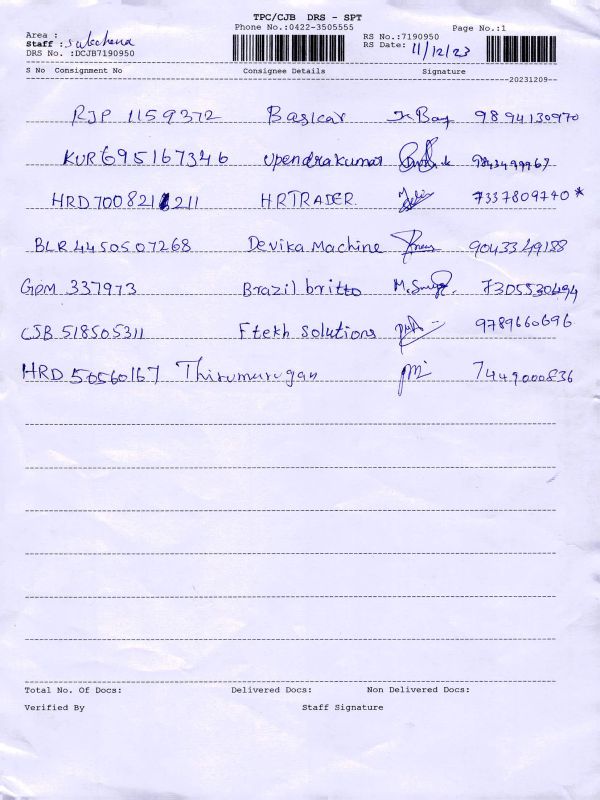 TPC/CJB DRS - SPT
Phone No.:0422-3505555 Page No.:1
Area : RS No.:7190950
Staff : Sulochana RS Date: 11/12/23
DRS No. :DCJB7190950
S No Consignment No Consignee Details Signature
20231209--
RJP 1159372 Baskar 9894130970
KUR695167346 Upendrakumar 9843499967
HRD700821211 HRTRADER 7337809770 *
BLR4450507268 Devika Machine 9043349188
GPM 337973 Brazil britto 7305530694
CJB 518505311 Ftekh Solutions 9789660696
HRD 50560167 Thirumurugan 7449000836
Total No. Of Docs: Delivered Docs: Non Delivered Docs:
Verified By Staff Signature